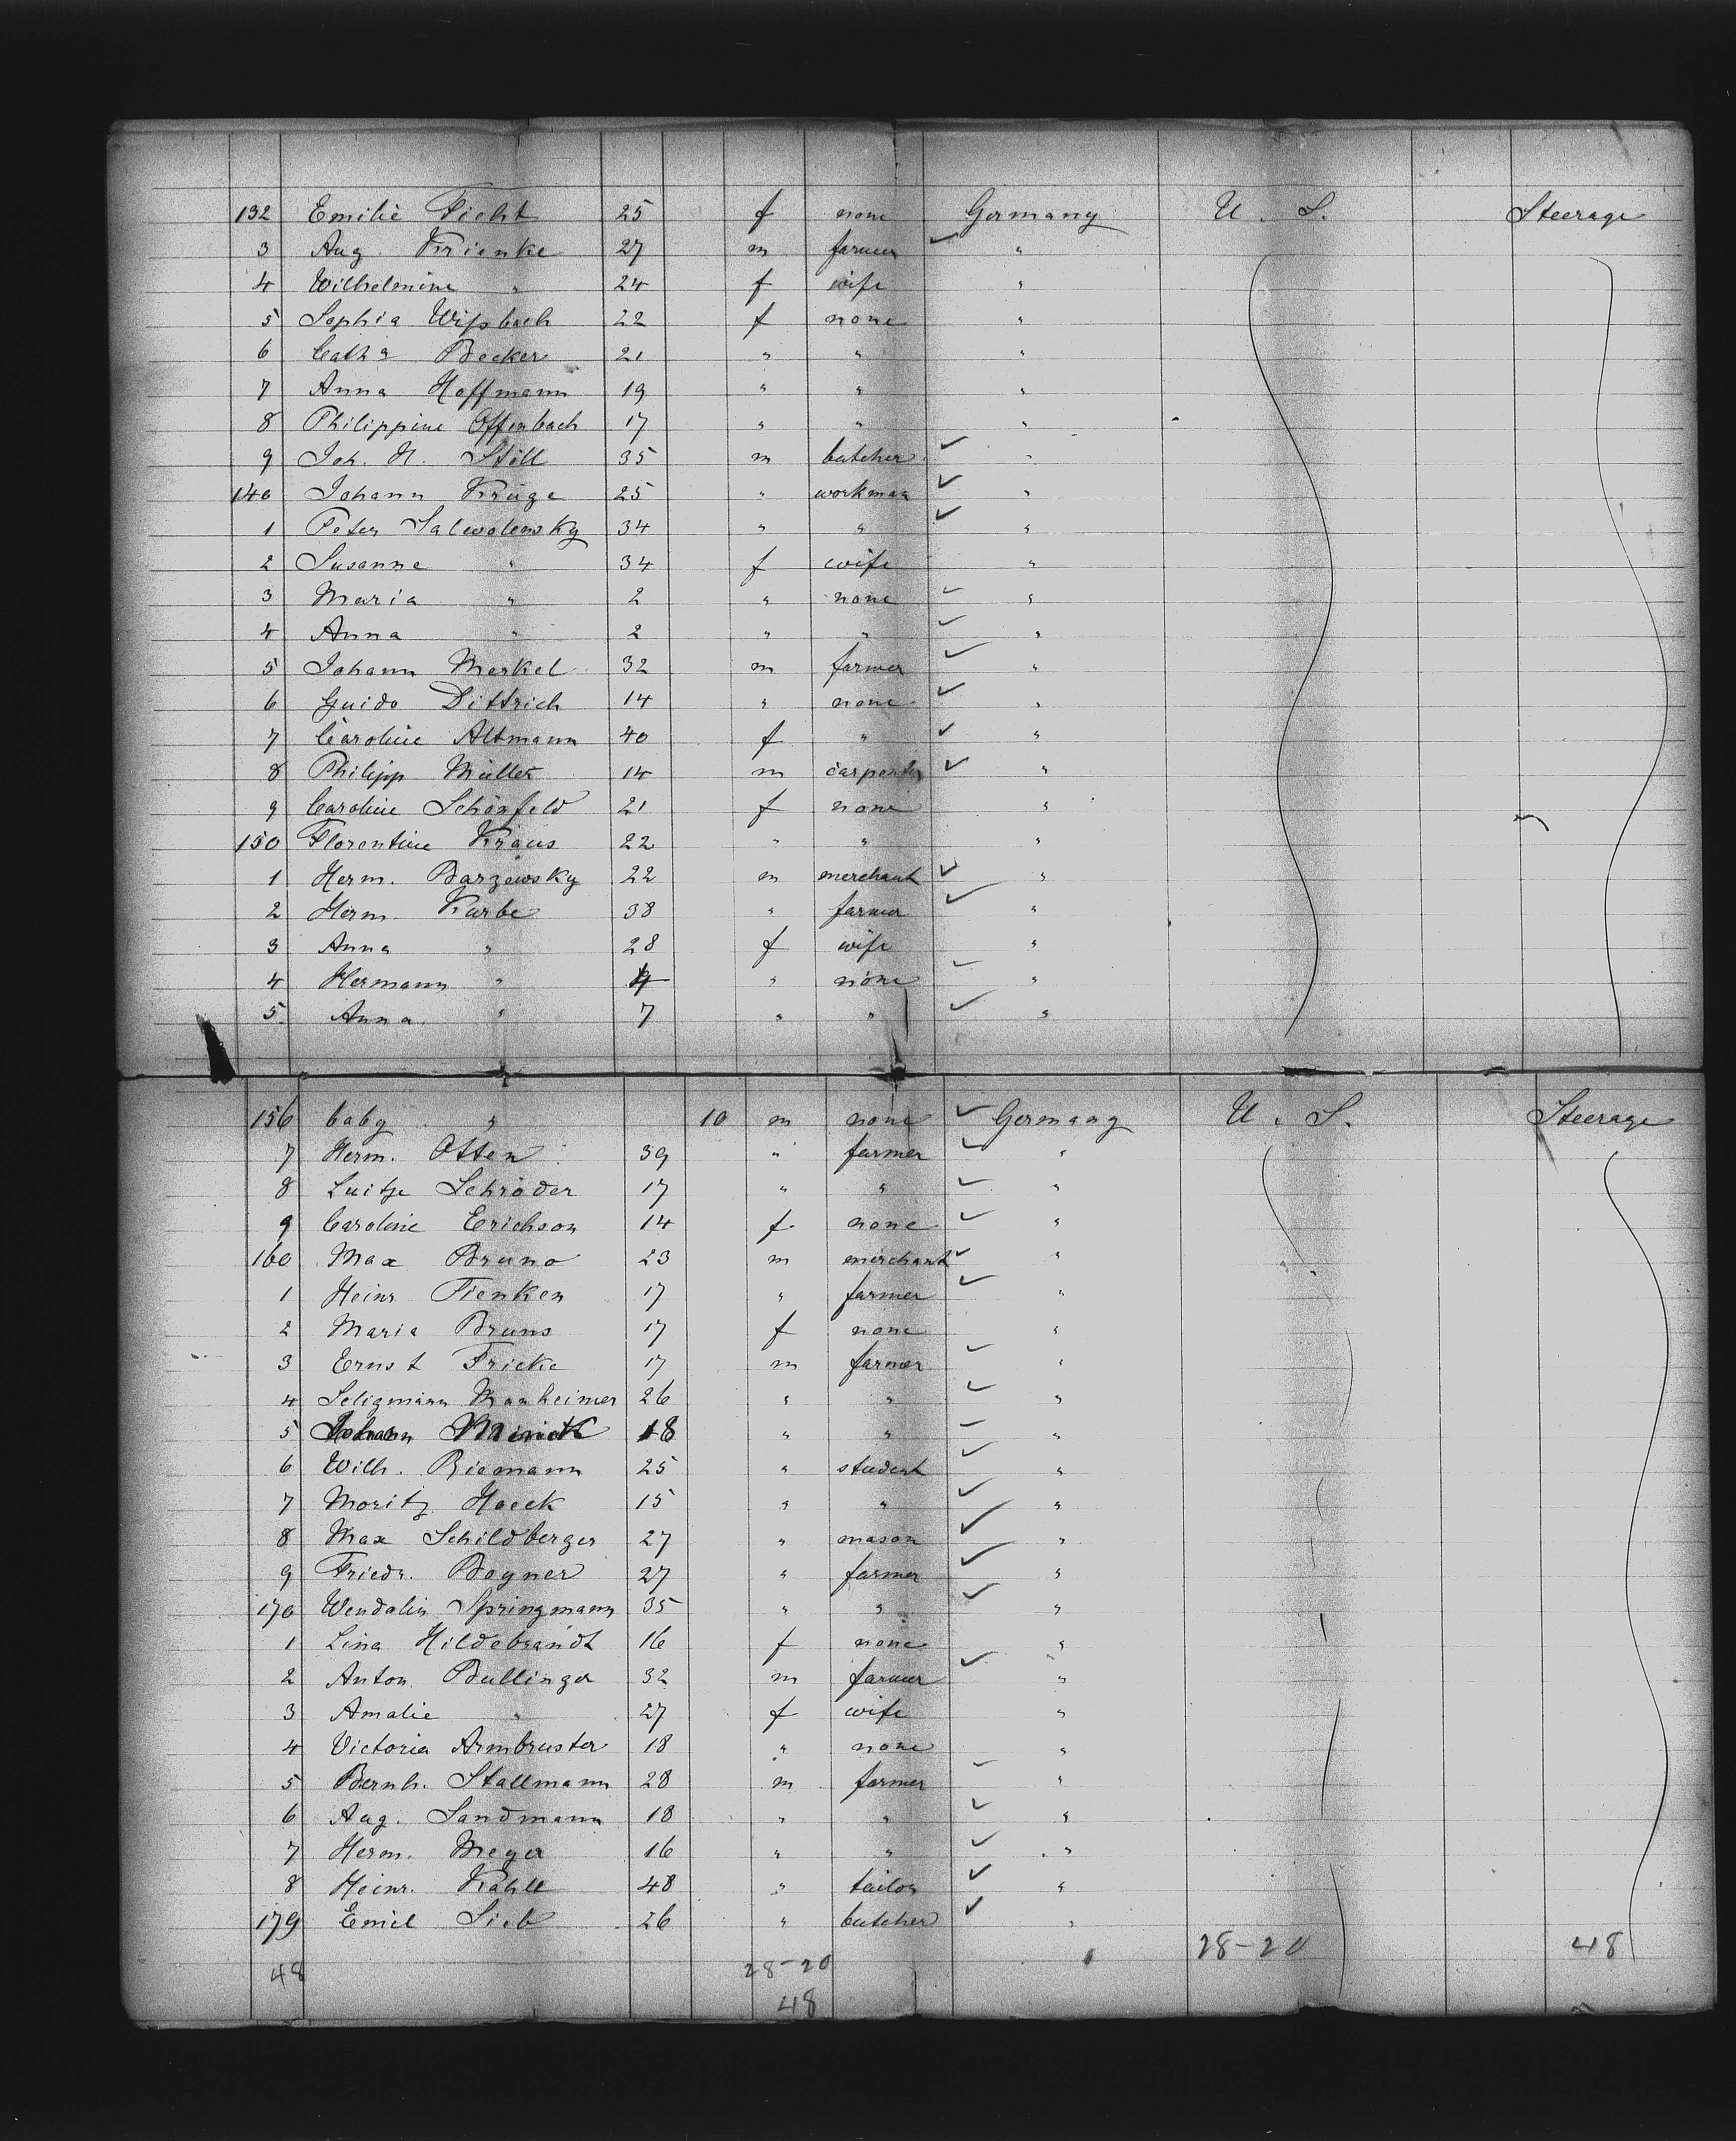 132 Emilie Ficht 25 f none Germany U. S. Steerage
3 Aug. Krienke 27 m farmer "
4 Wilhelmine " 24 f wife "
5 Sophia Wißbach 22 f none "
6 Cath a Becker 21 " " "
7 Anna Hoffmann 19 " " "
8 Philippine Offenbach 17 " " "
9 Joh. H. Stöll 35 m butcher "
140 Johann Krüge 25 " workman "
1 Peter 34 " " "
2 Susanne " 34 f wife "
3 Maria " 2 " none "
4 Anna " 2 " " "
5 Johann Merkel 32 m farmer "
6 Guido Dittrich 14 " none "
7 Caroline Altmann 40 f " "
8 Philipp Müller 14 m carpenter "
9 Caroline Schönfeld 21 f none "
150 Florentine Kraus 22 " " "
1 Herm. Barzewsky 22 m merchant "
2 Herm. Karbe 38 " farmer "
3 Anna " 28 f wife "
4 Hermann " " none "
5 Anna " 7 " " "
156 baby " 10 m none Germany U. S. Steerage
7 Herm. Otten 39 " farmer "
8 Luitje Schröder 17 " " "
9 Caroline Erichson 14 f none "
160 Max Bruno 23 m merchant "
1 Heinr Tienken 17 " farmer "
2 Maria Bruns 17 f none "
3 Ernst Fricke 17 m farmer "
4 Seligmann Manheimer 26 " " "
5 Johann Minck 18 " " "
6 Wilh. Riemann 25 " student "
7 Moritz Haeck 15 " " "
8 Max Schildberger 27 " mason "
9 Friedr. Bogner 27 " farmer "
170 Wendalin Springmann 35 " " "
1 Lina Hildebrandt 16 f none "
2 Anton Bullinger 32 m farmer "
3 Amalie " 27 f wife "
4 Victoria Armbruster 18 " none "
5 Bernh. Stallmann 28 m farmer "
6 Aug. Sandmann 18 " " "
7 Herm. Meyer 16 " " "
8 Heinr. Kahll 48 " tailor "
179 Emil Lieb 26 " butcher "
28-20 48
48 28-20
48